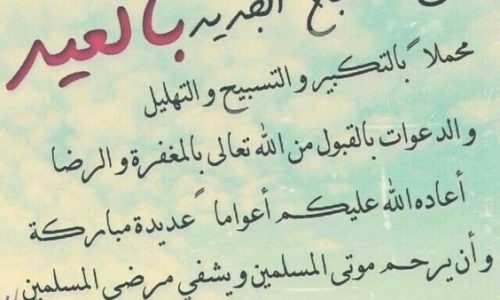 الجديد بالعيد
محملاً بالتكبير والتسبيح والتهليل
والدعوات بالقبول من الله تعالى بالمغفرة والرضا
أعاده الله عليكم أعواماً عديدة مباركة
وأن يرحم موتى المسلمين ويشفي مرضى المسلمين